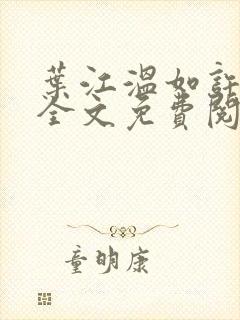 葉江溫如許
全文免費閱
童明康